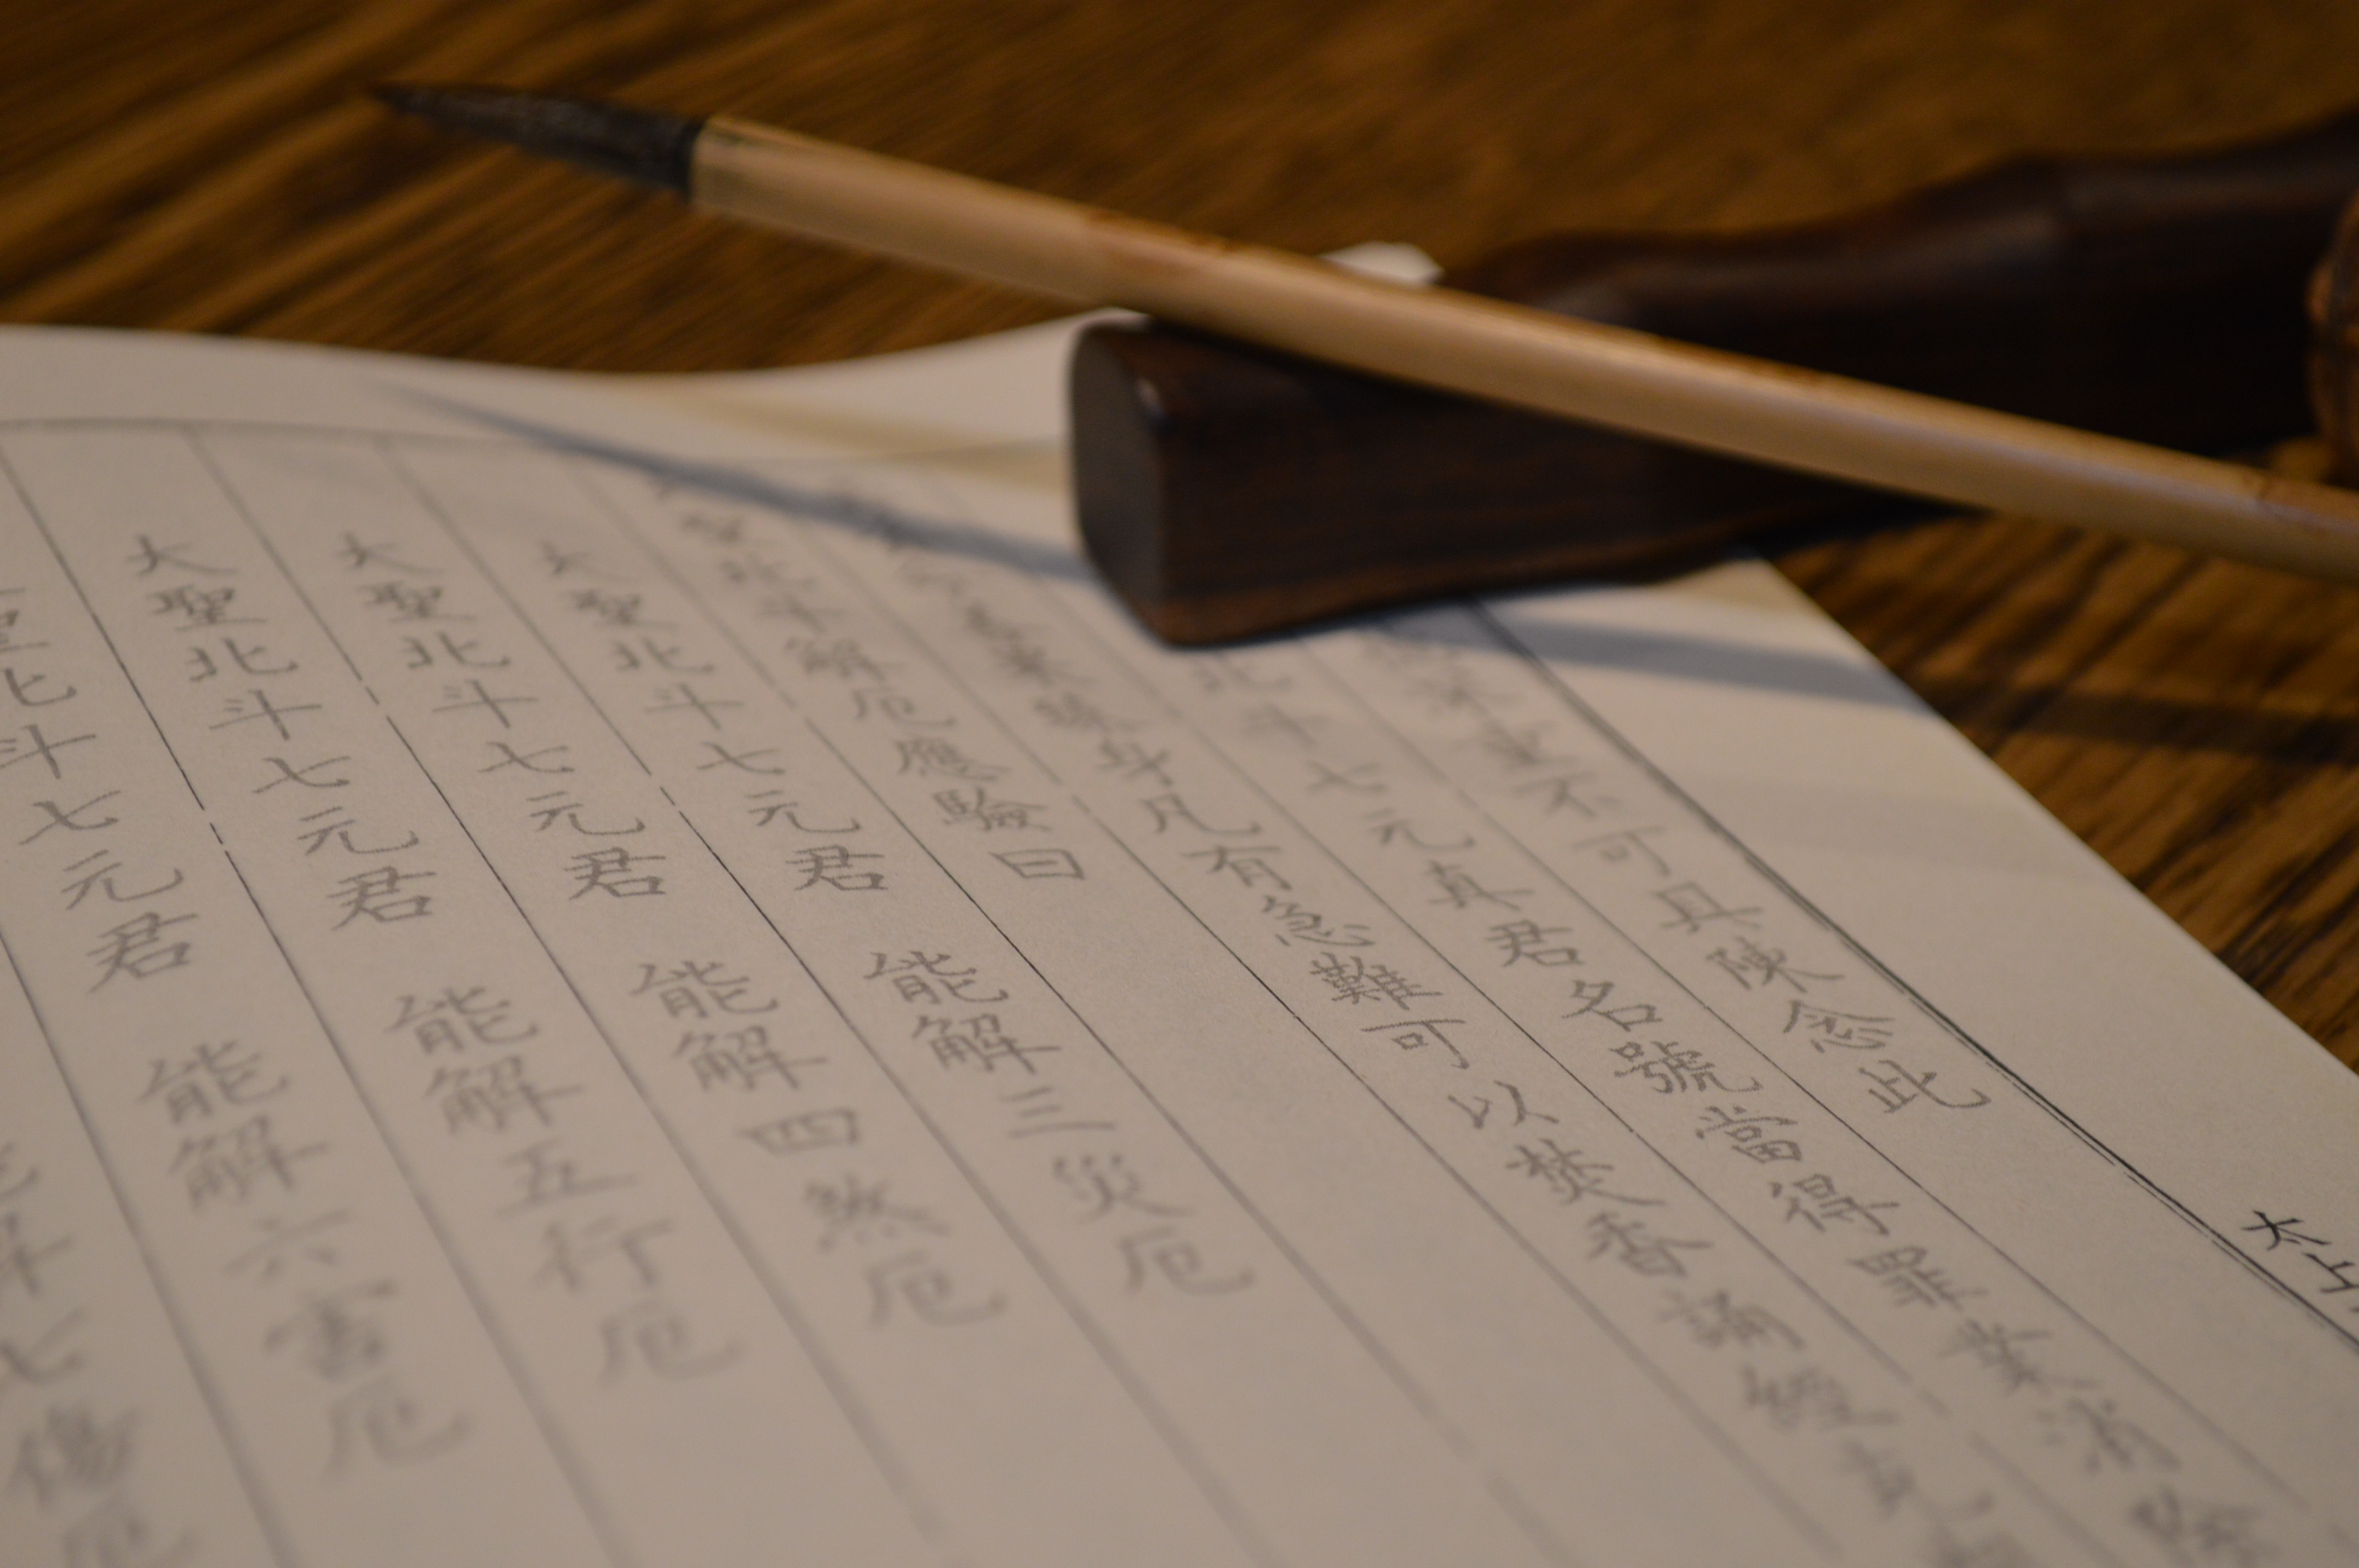 太上
不可具陳念此
北斗七元真君名號當得罪業消
身凡有急難可以焚香誦經
北斗解厄應驗曰
大聖北斗七元君 能解三災厄
大聖北斗七元君 能解四煞厄
大聖北斗七元君 能解五行厄
大聖北斗七元君 能解六害厄
聖北斗七元君 能解七傷厄